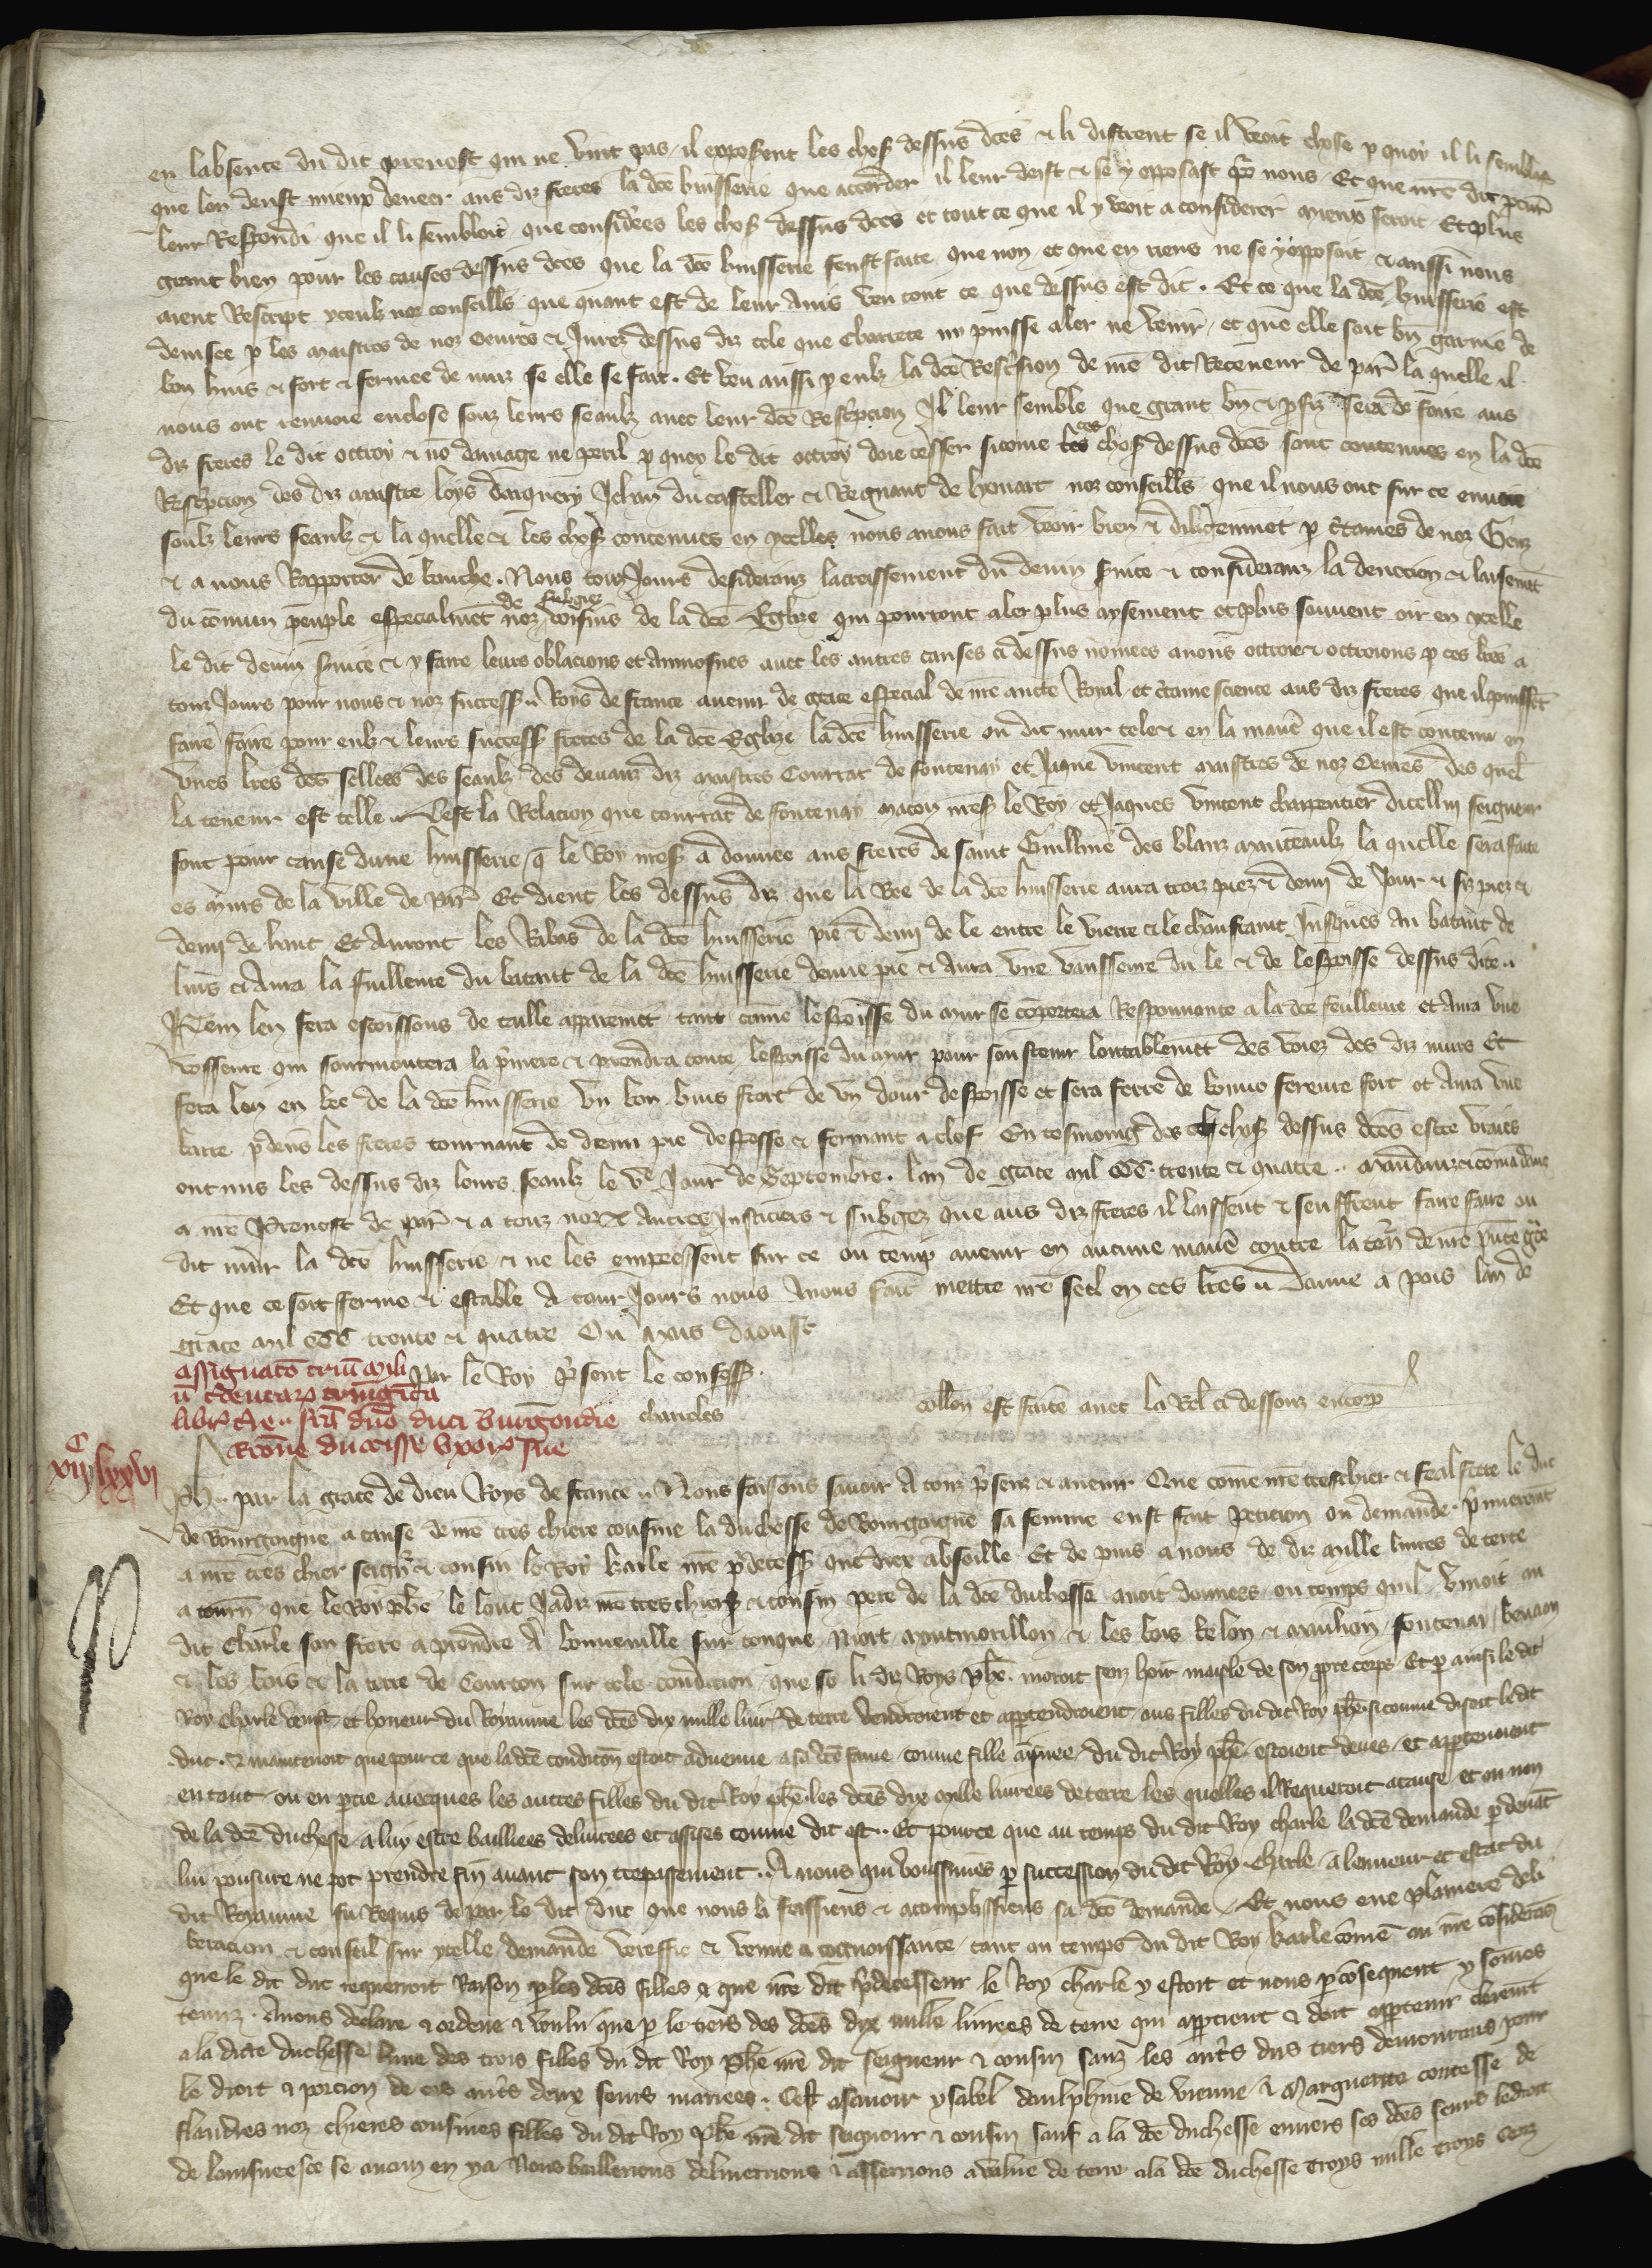 en labsence du dit prevost qui ne vint pas il exposent les chos dessus dces & li distrent se il veoit chose p quoy il li semblast
que len deust mieux deneer aus diz freres la dce huisserie que accorder il leur deist & se y opposast pr nous Et que nre dit pcur
leur Respondi que il li sembloit que considerees les chos dessus dces et tout ce que il y veoit a considerer mieux seroit Et plus
grant bien pour les causes dessus dces que la dce huisserie feust faite que non et que en riens ne se y opposoit & aussi nous
aient Rescript yceulz noz conseillers que quant est de leur avis veu tout ce que dessus est dit. Et ce que la dce huisserie est
devisee p les maistres de noz oevres & Jurez dessus diz tele que charrete ny puisse aler ne venir et que elle soit bn garnie de
bon huis & fort & fermee de nuiz se elle se fait. Et veu aussi p eulz la dce Rescrision de nre dit Receveur de par la quelle il
nous ont renvoie enclose souz leurs seaulz avec leur dce Rescripcion Il leur semble que grant bn & pfiz sera de faire aus
diz freres le dit octroy & no damage ne peril p quoy le dit octroy doie cesser sicome ces chos dessus dces sont contenues en la dce
Rescripcion des diz maistre loys Jehan du casteller & Regnaut de lyouart noz conseillers que il nous ont sur ce envoie
soulz leurs seaulz & la quelle & les chos contenues en ycelles nous avons fait veoir bien & diligenmet p ctaines de noz Genz
& a nous Rapporter de bouche. Nous touz Jours desideranz lacroissement du devin svice & consideranz la devocion & laisemet
du comun peuple especialmet de noz subgiez voisins de la dce Eglize qui pourront aler plus aysement et plus souvent oir en ycelle
le dit devin svice & y faire leurs oblacions et aumosnes avec les autres causes ci dessus nomees avons octroie & octroions p ces lres a
touz Jours pour nous & noz success Roys de france avenir de grace especial de nre aucte Royal et ctaine science aus diz freres que il puisset
faire faire pour eulz & leurs success freres de la dce Eglize la dce huisserie ou dit mur tele & en la maie que il est contenu en
unes lres dces sellees des seaulz des devanz diz maistres Courrat de fontenay et Jaque vincent maistres de noz Oevres des quel
la teneur est telle. Cest la Relacion que courrat de fontenay macon mess le Roy et Jaques vincent charpentier dicelluy seigneur
font pour cause dune huisserie q le Roy mess a donnee aus freres de saint Guillme des blanz manteaulz la quelle sera faite
es murs de la ville de par Et dient les dessus diz que la Bee de la dce huisserie aura troiz piez & demi de Jour & siz piez &
demi de haut Et auront les Rabas de la dce huisserie pie & demi de le entre le vierre & le chanfraint Jusques au batant de
luis & aura la fuilleure du batant de la dce huisserie demie pie & aura une vausseure du le & de lespoisse dessus dite
Item len fera escoissons de taille apparemet tant come lespoisse du mur se coportera Respomante a la dce feuilleure et aura une
vosseure qui sourmontera la pmiere & prendra toute lespoisse du mur pour soustenir Et
fera len en bee de la dce huisserie un bon huis fort de un dour despoisse et sera ferre de bonne ferreure fort et aura une
barre pdevs les freres tournant de demi pie despesse & fermant a clef En tesmoing des chos dessus dces estre vraies
ont mis les dessus diz leurs seaulz le ve Jour de Septembre. lan de grace mil CCC trente & quatre. mandanz & comadons
a nre Prevost de par & a touz noz autres Justiciers & subgez que aus diz freres il laissent & seuffrent faire faire ou
dit mur la dce huisserie & ne les empeessent sur ce ou temp avenir en aucune maie contre la ten de nre pnte gre
Et que ce soit ferme & estable a touz Jours nous avons fait mettre nre seel en ces lres. Donne a pois lan de
grace mil CCC trente & quatre Ou mois daoust
Par le Roy psent le confess.
charroles
collon est faite avec la Rel ci dessouz encorp
assignaco trium mili
u tdecaz triuginta
libr tre. fca dno duci burgondie
Rcone ducisse uxor sue
C
xiiij lxxvi
Ph. par la grace de dieu Roys de france. Nous faisons savoir a touz psenz & avenir Que come nre treschier & feal frere le duc
de Bourgoigne a cause de nre tres chiere cousine la duchesse de Bourgoigne sa femme eust fait peticion ou demande. pmierent
a nre tres chier seign & cousin le Roy karle nre pdecess que diex absoille Et de puis a nous de diz mille livres de terre
a tourn. que le Roy phe le lonc Jadiz nre tres chiers & cousin pere de la dce duchesse avoit donnees ou temps quil vivoit au
dit Charle son frere a prendre a bonneville sur touque Niort montmorillon & les bois
& les bois & la terre de Courcon sur tele condicion que se li diz Roys phe. moroit senz hoir masle de son ppre corps Et p ainsi le dit
Roy Charle venist et honeur du Royaume les dces dix mille livr de terre vendroient et appartendroient aus filles du dit Roy phe. si comme disoit le dit
duc. & maintenoit que pource que la dce condicon estoit advenue a sa dce fame comme fille ainsnee du dit Roy phe. estoient deues et appartenoient
en tout ou en ptie avecques les autres filles du dit Roy phe. les dces dix mille livrees de terre les quelles il Requeroit a cause et ou non
de la dce duchesse a luy estre bailliees delivrees et assises comme dit est. Et pource que au temps du dit Roy charle la dce demande p devat
lui poursuie ne pot prendre fin avant son trepassement. A nous qui venissmes p succession du dit Roy Charle a leneur et estat du
dit Royaume fu Requis de par le dit duc que nous li feissiens & acomplissiens sa dce demande. Et nous eue plaiere deli
beracion & conseil sur ycelle demande vereffie & venue a cognoissance tant au temps du dit Roy karle come au nre considerans
que le dit duc requeroit Raison p les dces filles & que nre dit pdecesseur le Roy charle y estoit et nous p consequent y somes
tenuz. Avons declare & ordene & voulu que p le tiers des dces dix mille livrees de terre qui apptient & doit apptenir cleremt
a la dicte duchesse lune des trois filles du dit Roy phe nre dit seigneur & cousin sanz les autrs dus tiers demourans pour
le droit & porcion de ces autrs deux seurs mariees. Cest assavoir ysabel daulphine de vienne & Marguerite contesse de
flandres noz chieres cousines filles du dit Roy phe nre dit seigneur & cousin sauf a la dce duchesse envers ses dces seurs le droit
de lainsneesce se aucun en ya Nous baillerions delivrerions & asserrions a value de terre a la dce duchesse troys mille troys cenz